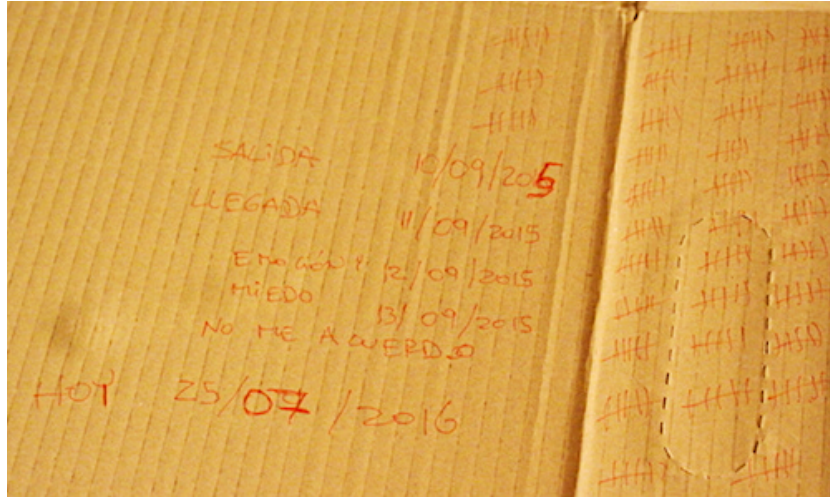 SALIDA 10/09/2015
LLEGADA 11/09/2015
EMOCIÓN Y 12/09/2015
MIEDO 13/09/2015
NO ME ACUERDO
HOY 25/07/2016